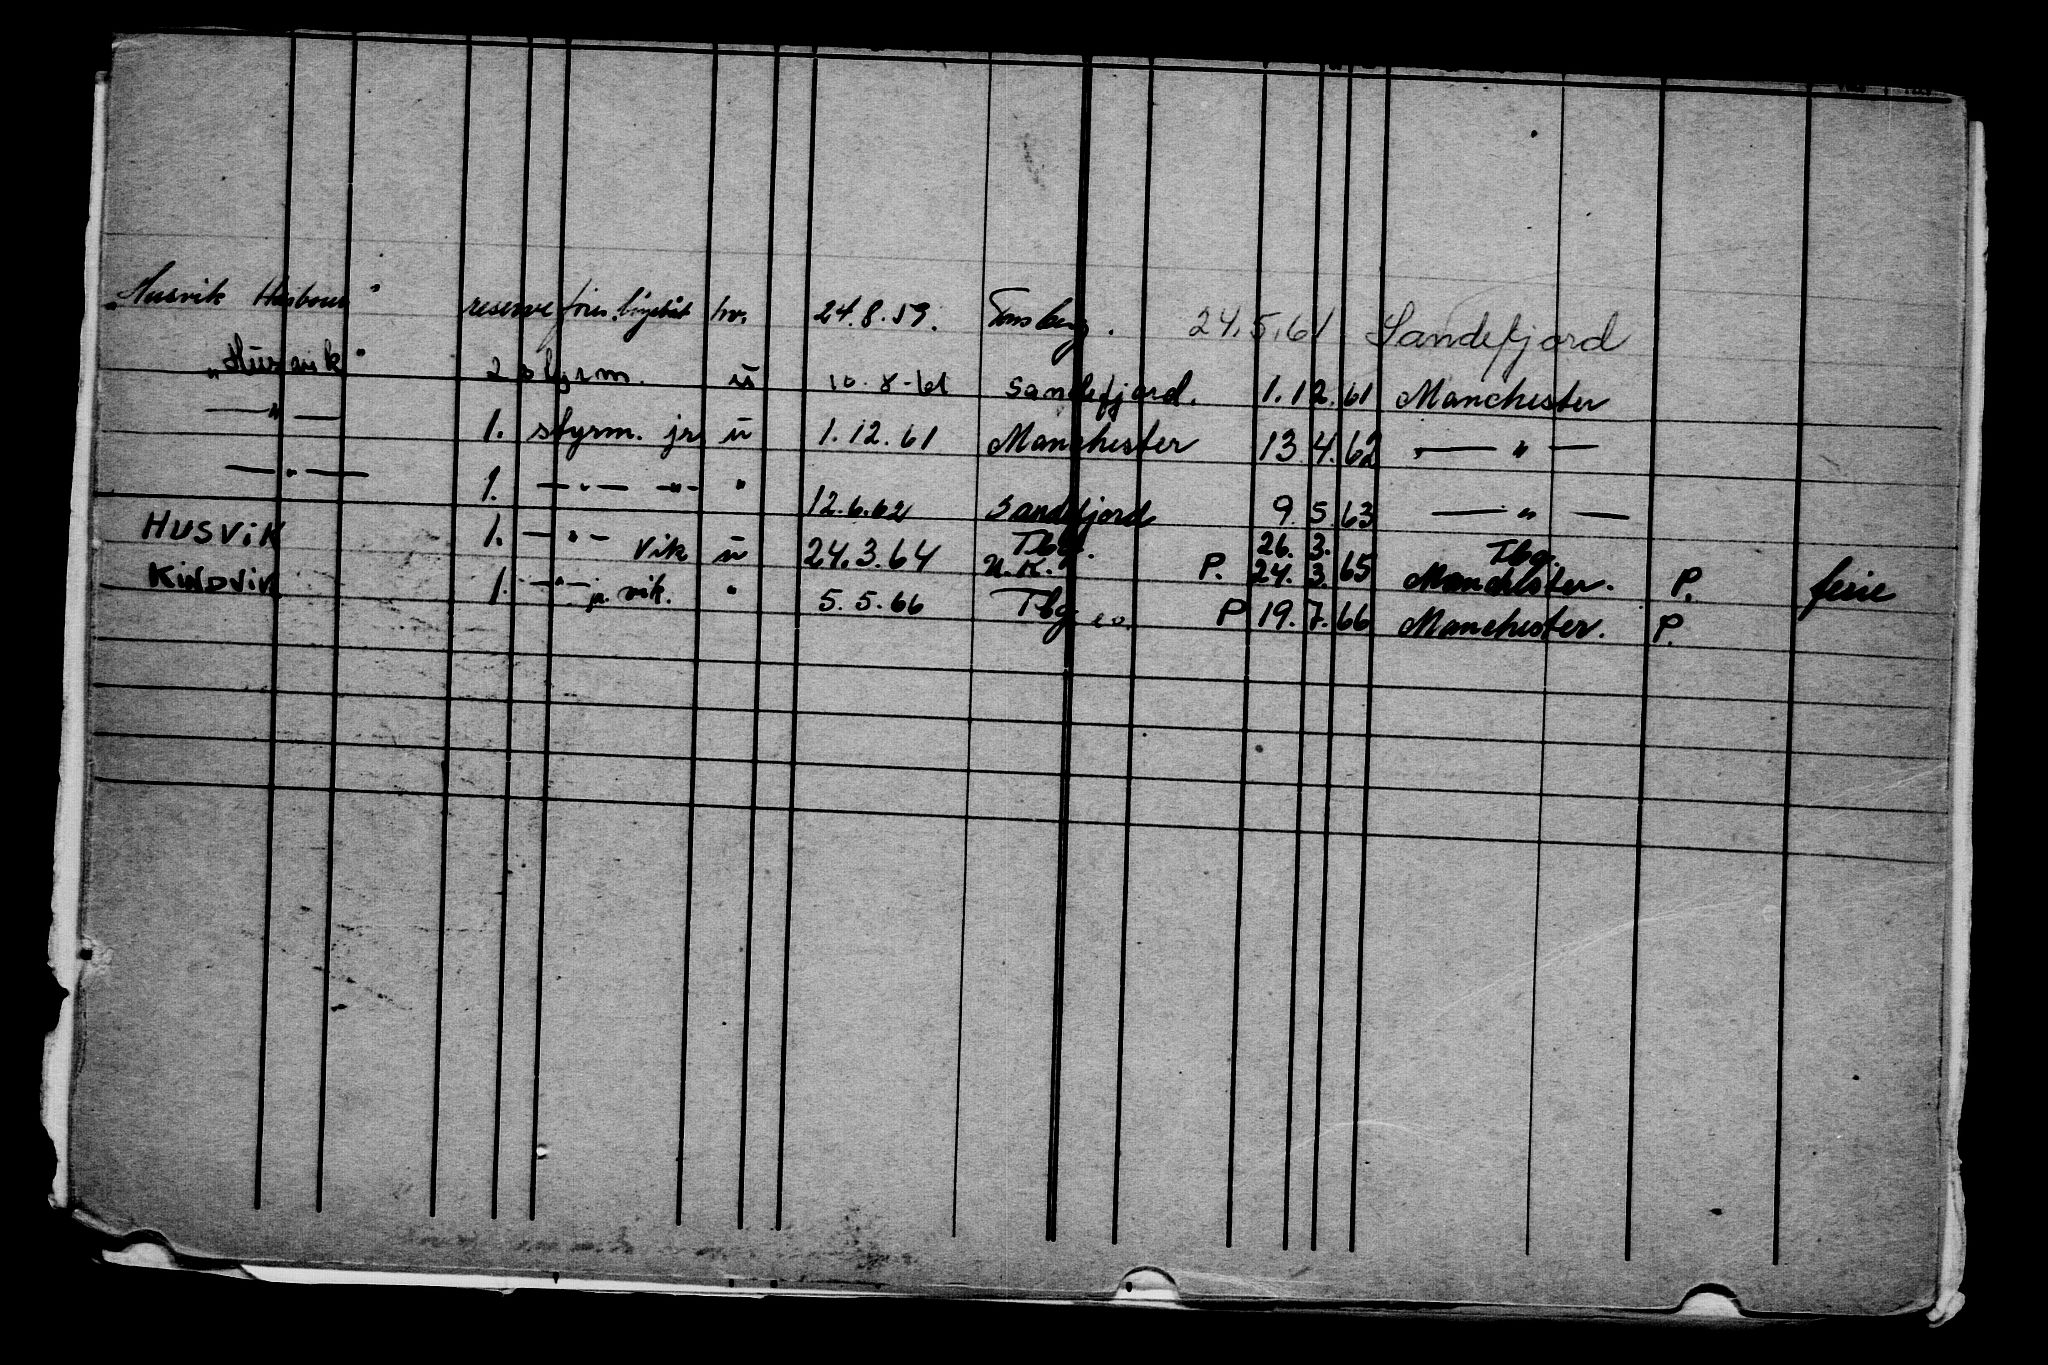 "Husvik Harbour" reserve förer bøyebåt hv. 24.8.59. Tønsberg. 24.5.61 Sandefjord
"Husvik" 2 styrm. u 10-8-61 Sandefjord. 1.12.61 Manchester
—"— 1. styrm. jr u 1.12.61 Manchester 13.4.62 —"—
—"— 1. —"— —"— " 12.6.62 Sandefjord 9.5.63 —"—
HUSVIK 1. —"— Vik u 24.3.64 Tbg. 26.3. Tbg.
U.K. P. 24.3.65 Manchester. P. ferie
KINDVIK 1. —"— jr. vik. " 5.5.66 Tbg P 19.7.66 Manchester. P.